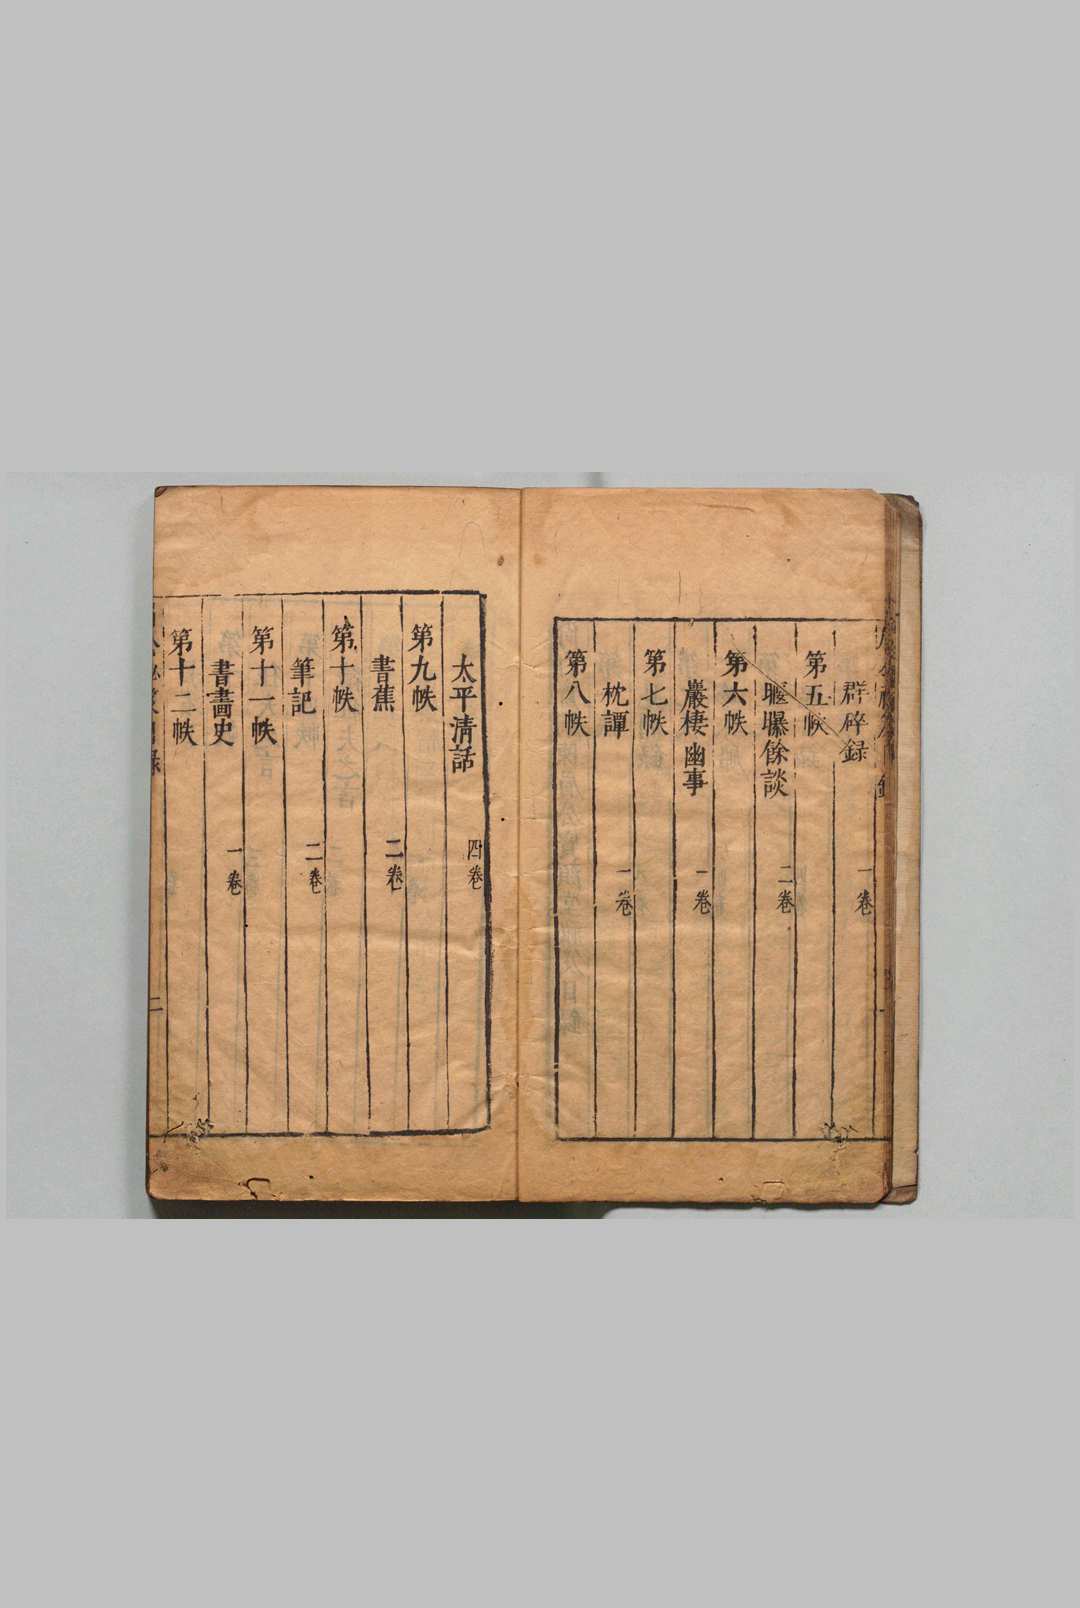 群碎録
一卷
第五帙
偃曝餘談
二卷
第六帙
巖棲幽事
一卷
第七帙
枕譚
一卷
第八帙
太平清話
四卷
第九帙
書蕉
二卷
第十帙
筆記
二卷
第十一帙
書畵史
一卷
第十二帙
二